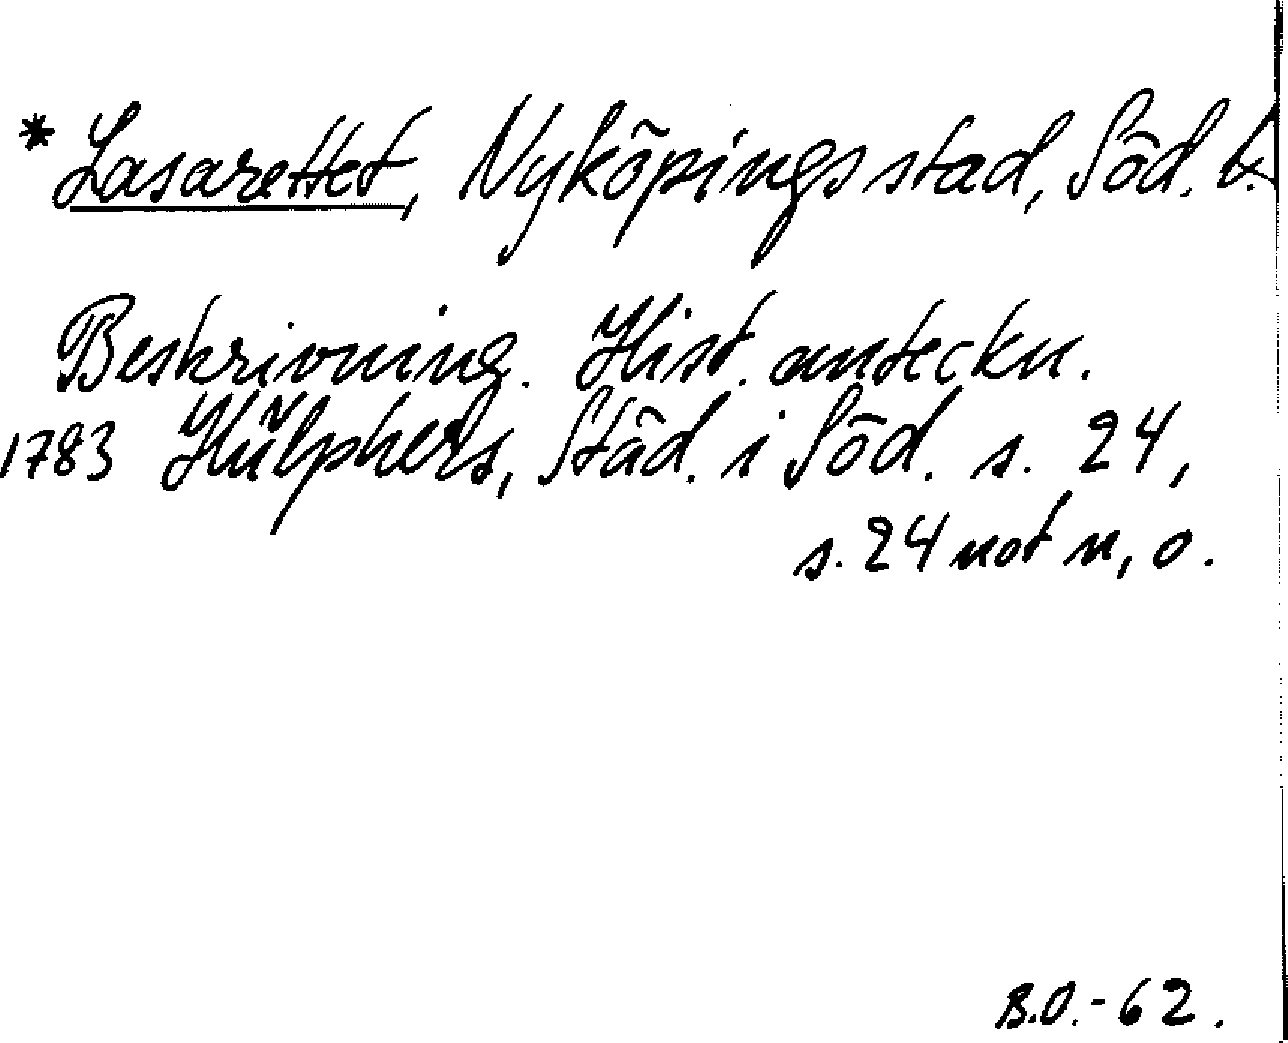 * Lasarettet, Nyköpings stad, Söd. l.
Beskrivning. Hist. anteckn.
1783 Hülphers, Städ. i Söd. s. 24,
s. 24 not n, o.
B.O.-62.